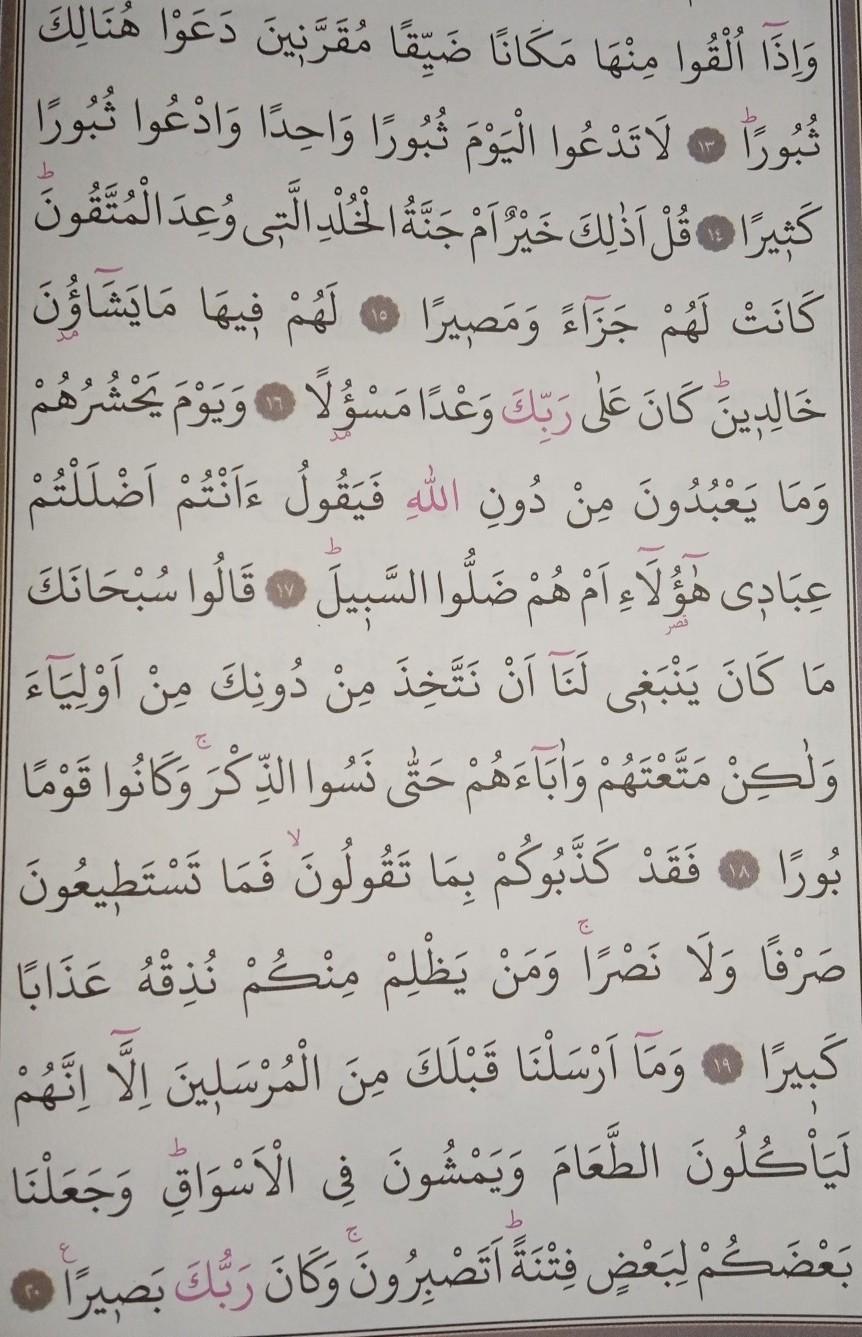 وَاِذَٓا اُلْقُوا مِنْهَا مَكَانًا ضَيِّقًا مُقَرَّنٖينَ دَعَوْا هُنَالِكَ
ثُبُورًاؕ ١٣ لَا تَدْعُوا الْيَوْمَ ثُبُورًا وَاحِدًا وَادْعُوا ثُبُورًا
كَثٖيرًا ١٤ قُلْ اَذٰلِكَ خَيْرٌ اَمْ جَنَّةُ الْخُلْدِ الَّتٖى وُعِدَ الْمُتَّقُونَؕ
كَانَتْ لَهُمْ جَزَٓاءً وَمَصٖيرًا ١٥ لَهُمْ فٖيهَا مَا يَشَٓاؤُ۫نَ
خَالِدٖينَؕ كَانَ عَلٰى رَبِّكَ وَعْدًا مَسْؤُ۫لًا ١٦ وَيَوْمَ يَحْشُرُهُمْ
وَمَا يَعْبُدُونَ مِنْ دُونِ اللّٰهِ فَيَقُولُ ءَاَنْتُمْ اَضْلَلْتُمْ
عِبَادٖى هٰٓؤُ۬لَٓاءِ اَمْ هُمْ ضَلُّوا السَّبٖيلَؕ ١٧ قَالُوا سُبْحَانَكَ
مَا كَانَ يَنْبَغٖى لَنَٓا اَنْ نَتَّخِذَ مِنْ دُونِكَ مِنْ اَوْلِيَٓاءَ
وَلٰكِنْ مَتَّعْتَهُمْ وَاٰبَٓاءَهُمْ حَتّٰى نَسُوا الذِّكْرَۚ وَكَانُوا قَوْمًا
بُورًا ١٨ فَقَدْ كَذَّبُوكُمْ بِمَا تَقُولُونَۙ فَمَا تَسْتَطٖيعُونَ
صَرْفًا وَلَا نَصْرًاۚ وَمَنْ يَظْلِمْ مِنْكُمْ نُذِقْهُ عَذَابًا
كَبٖيرًا ١٩ وَمَٓا اَرْسَلْنَا قَبْلَكَ مِنَ الْمُرْسَلٖينَ اِلَّٓا اِنَّهُمْ
لَيَأْكُلُونَ الطَّعَامَ وَيَمْشُونَ فِى الْاَسْوَاقِؕ وَجَعَلْنَا
بَعْضَكُمْ لِبَعْضٍ فِتْنَةًؕ اَتَصْبِرُونَۚ وَكَانَ رَبُّكَ بَصٖيرًاࣖ ٢٠